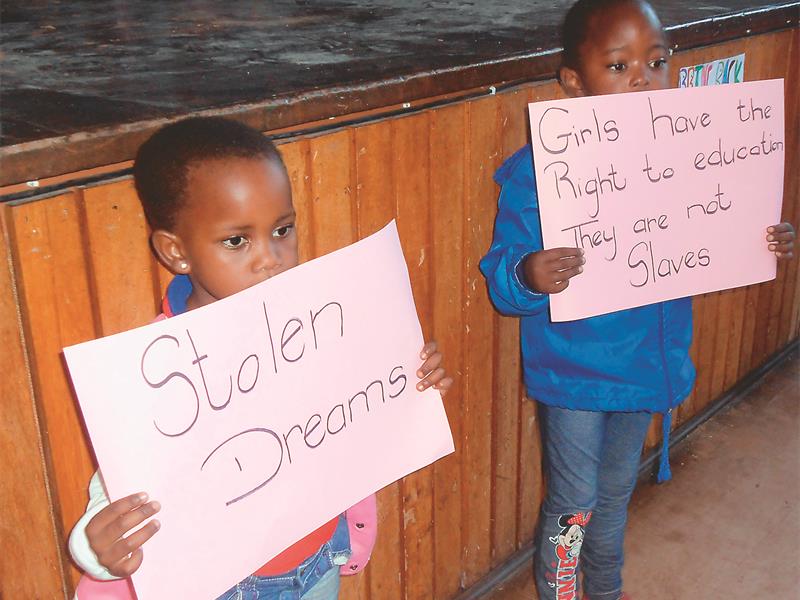 Stolen
Dreams
Girls have the
Right to education
They are not
Slaves